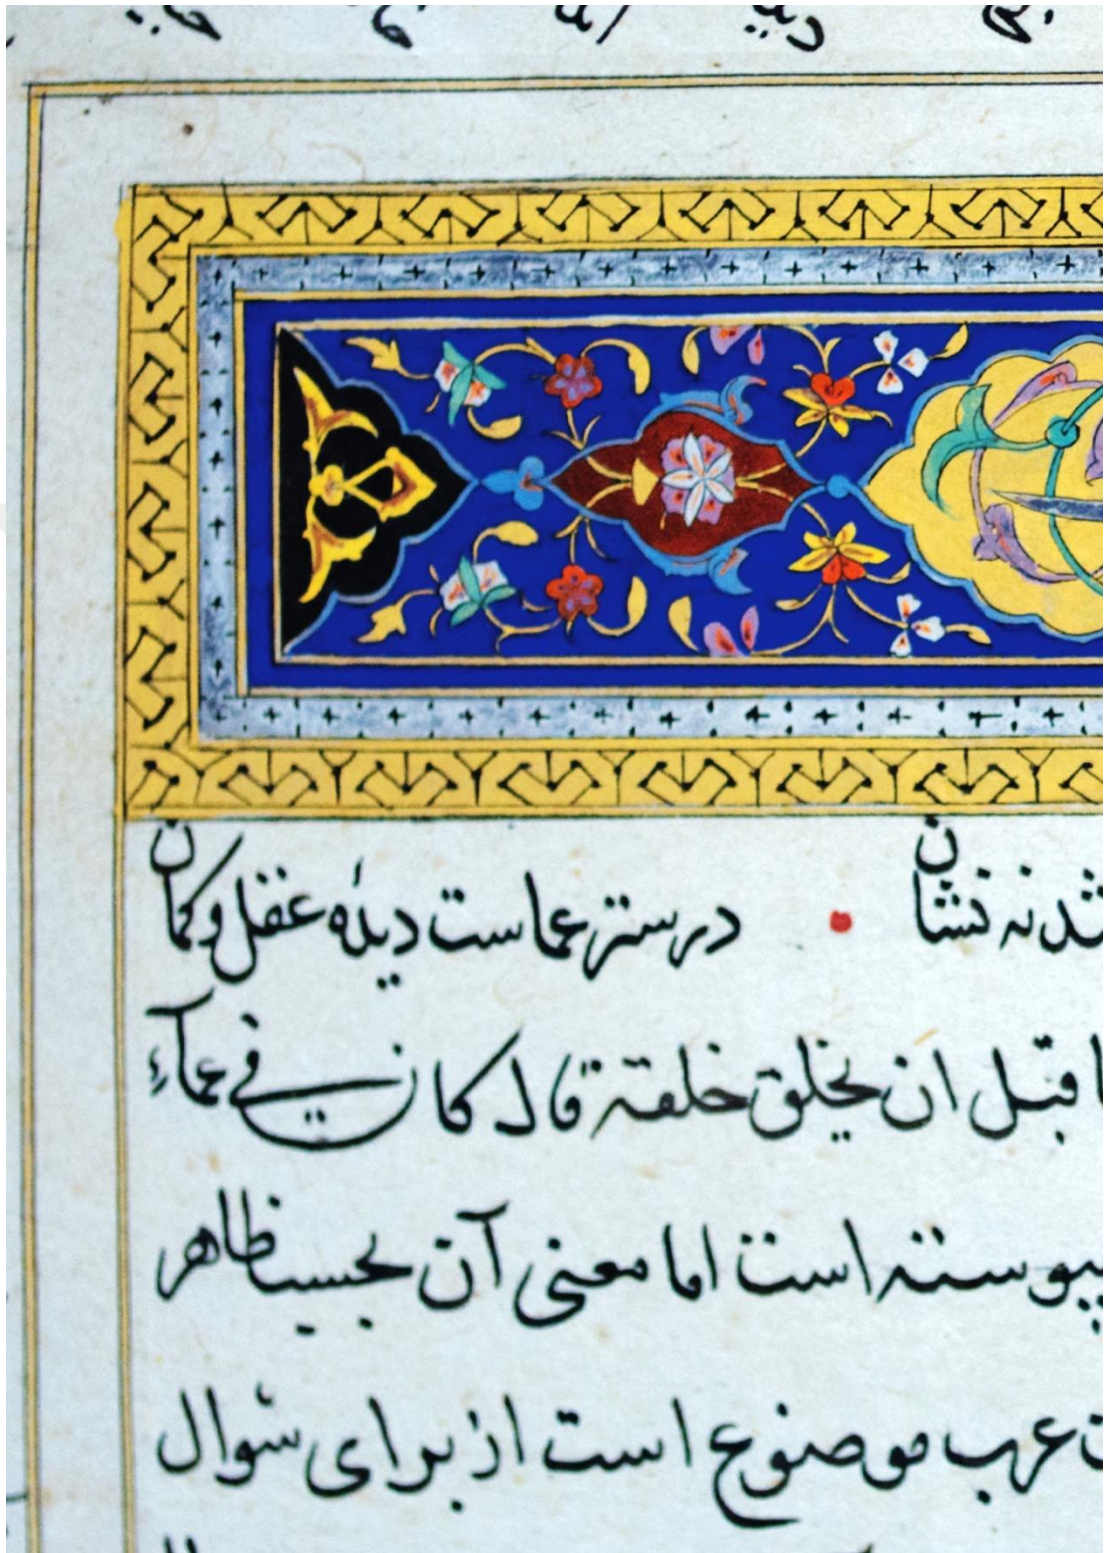 شد نه نشان • درستر عماست دیدهٔ عقل و کمان
قبل ان يخلق خلقه قال كان في عمآء
پیوسته است اما معنی آن بحسب ظاهر
عرب موصنوع است از برای سٔوال